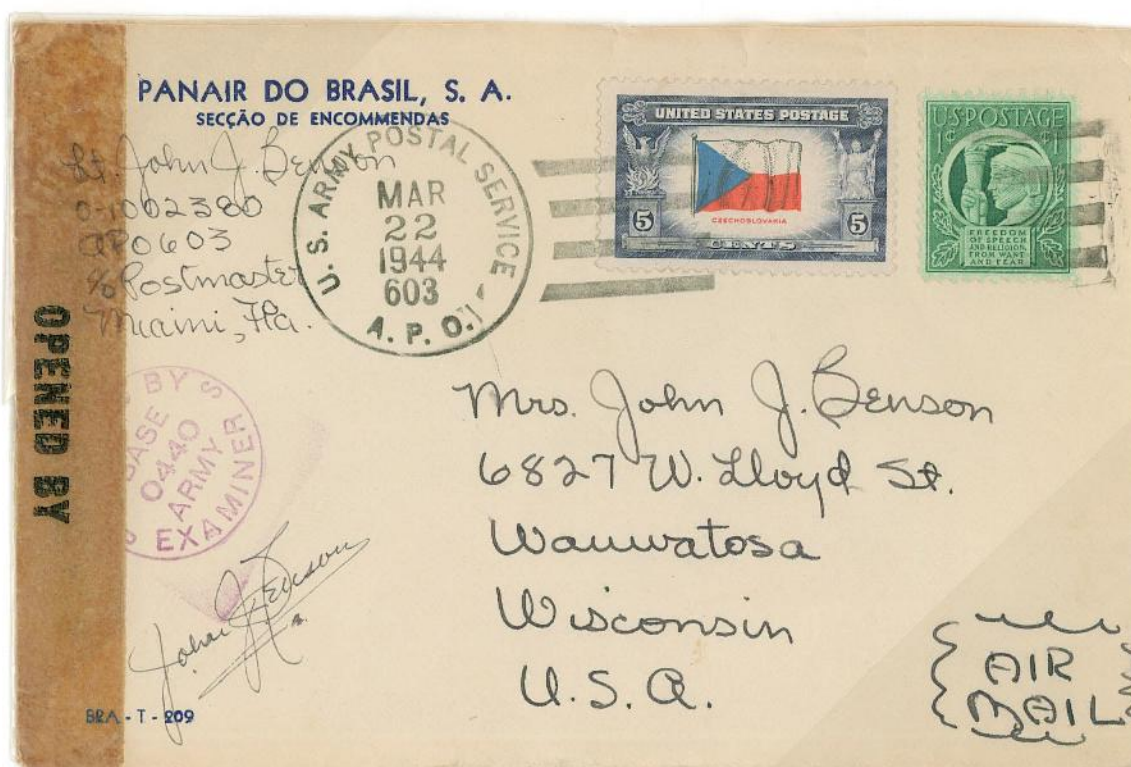 PANAIR DO BRASIL, S. A.
SECÇÃO DE ENCOMMENDAS
Lt. John J. Benson
0-1002380
APO 603
c/o Postmaster
Miami, Fla.
U.S. ARMY POSTAL SERVICE
MAR
22
1944
603
A. P. O.
UNITED STATES POSTAGE
CZECHOSLOVAKIA
5 5
CENTS
U.S. POSTAGE
1¢ 1¢
FREEDOM
OF SPEECH
AND RELIGION,
FROM WANT
AND FEAR
OPENED BY
BY
BASE
0440
ARMY
EXAMINER
S
Mrs. John J. Benson
6827 W. Lloyd St.
Wauwatosa
Wisconsin
U.S.A.
AIR
MAIL
John J Benson
BRA - T - 209